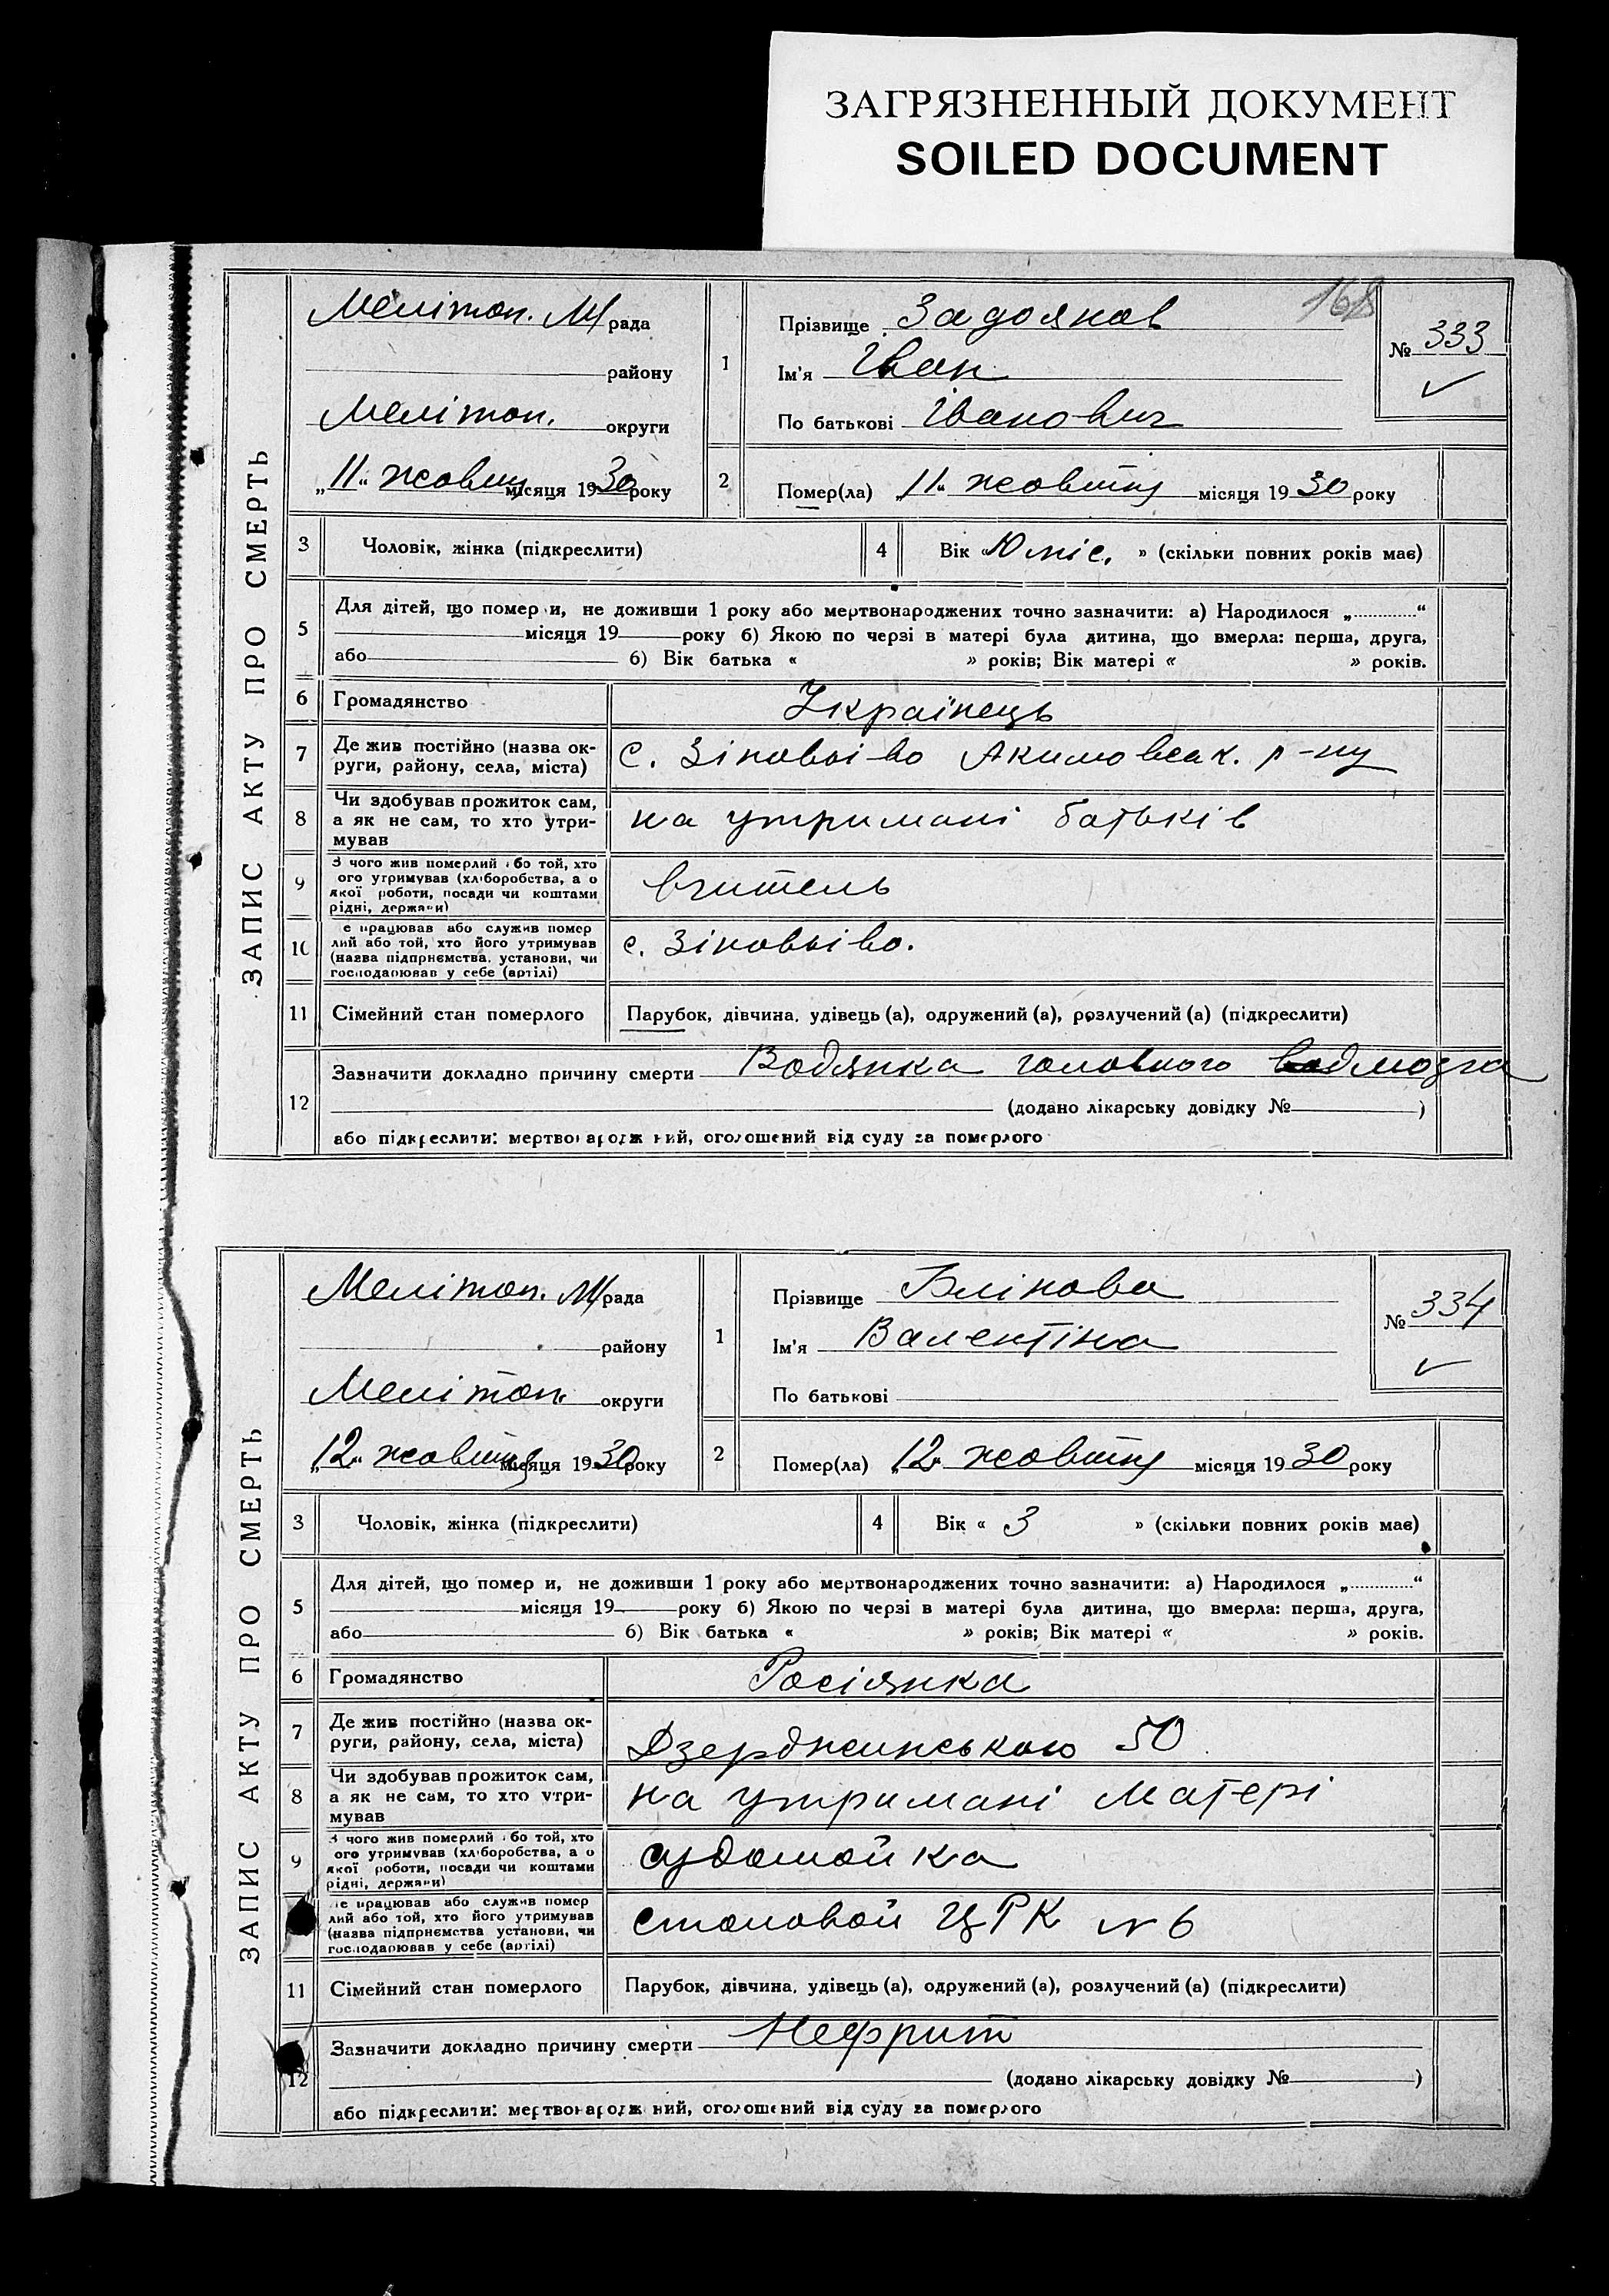 ЗАГРЯЗНЕННЫЙ ДОКУМЕНТ
SOILED DOCUMENT
168
ЗАПИС АКТУ ПРО СМЕРТЬ
Меліто​п. М/рада
району
Меліто​п. округи
„11“ жовтня місяця 1930 року
1
Прізвище Задоянов
Ім'я Іван
По батькові Іванович
№ 333
2 Помер(ла) „11“ жовтня місяця 1930 року
3 Чоловік, жінка (підкреслити)
4 Вік «10 міс. » (скільки повних років має)
5 Для дітей, що помер и, не доживши 1 року або мертвонароджених точно зазначити: а) Народилося „............“
місяця 19 року б) Якою по черзі в матері була дитина, що вмерла: перша, друга,
або б) Вік батька « » років; Вік матері « » років.
6 Громадянство Українець
7 Де жив постійно (назва ок-
руги, району, села, міста) с. Зіновьіво Акимовськ. р-ну
8 Чи здобував прожиток сам,
а як не сам, то хто утри-
мував
на утримані батьків
9 З чого жив померлий або той, хто
ого утримував (хліборобства, а о
якої роботи, посади чи коштами
рідні, держави)
вчитель
10 е працював або служив помер
лий або той, хто його утримував
(назва підприємства, установи, чи
господарював у себе (артілі)
с. Зіновьіво.
11 Сімейний стан померлого Парубок, дівчина, удівець (а), одружений (а), розлучений (а) (підкреслити)
12 Зазначити докладно причину смерти Водянка головного мозга
(додано лікарську довідку № )
або підкреслити: мертвонароджений, оголошений від суду за померлого
ЗАПИС АКТУ ПРО СМЕРТЬ
Меліто​п. М/рада
району
Меліто​п. округи
„12“ жовтня місяця 1930 року
1
Прізвище Блінова
Ім'я Валентіна
По батькові
№ 334
2 Помер(ла) „12“ жовтня місяця 1930 року
3 Чоловік, жінка (підкреслити)
4 Вік « 3 » (скільки повних років має)
5 Для дітей, що помер и, не доживши 1 року або мертвонароджених точно зазначити: а) Народилося „............“
місяця 19 року б) Якою по черзі в матері була дитина, що вмерла: перша, друга,
або б) Вік батька « » років; Вік матері « » років.
6 Громадянство Росіянка
7 Де жив постійно (назва ок-
руги, району, села, міста) Дзерджинською 50
8 Чи здобував прожиток сам,
а як не сам, то хто утри-
мував
на утримані матері
9 З чого жив померлий або той, хто
ого утримував (хліборобства, а о
якої роботи, посади чи коштами
рідні, держави)
судомойка
е працював або служив помер
лий або той, хто його утримував
(назва підприємства, установи, чи
господарював у себе (артілі)
столовой ЦРК № 6
11 Сімейний стан померлого Парубок, дівчина, удівець (а), одружений (а), розлучений (а) (підкреслити)
12 Зазначити докладно причину смерти Нефрит
(додано лікарську довідку № )
або підкреслити: мертвонароджений, оголошений від суду за померлого